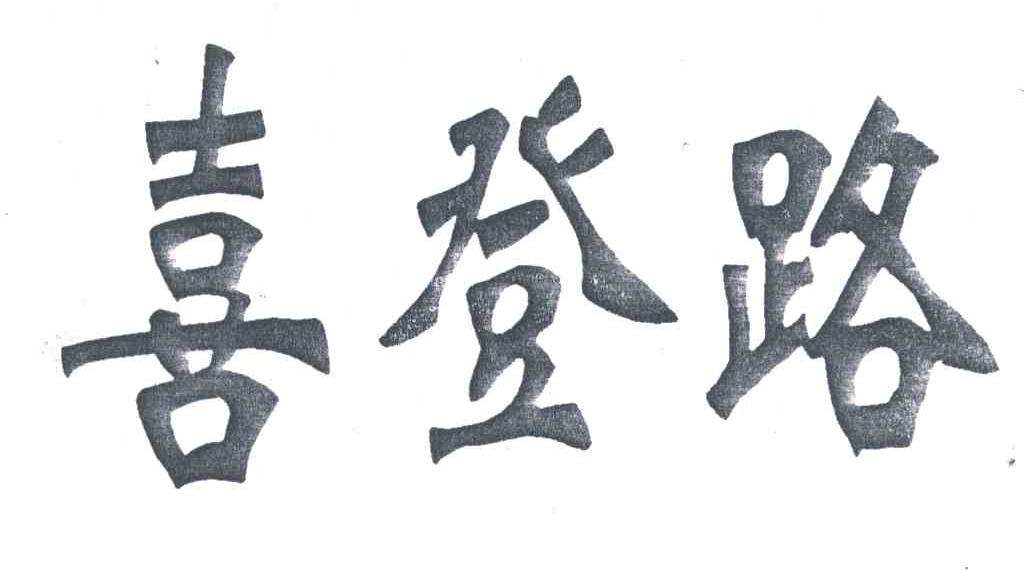 喜登路